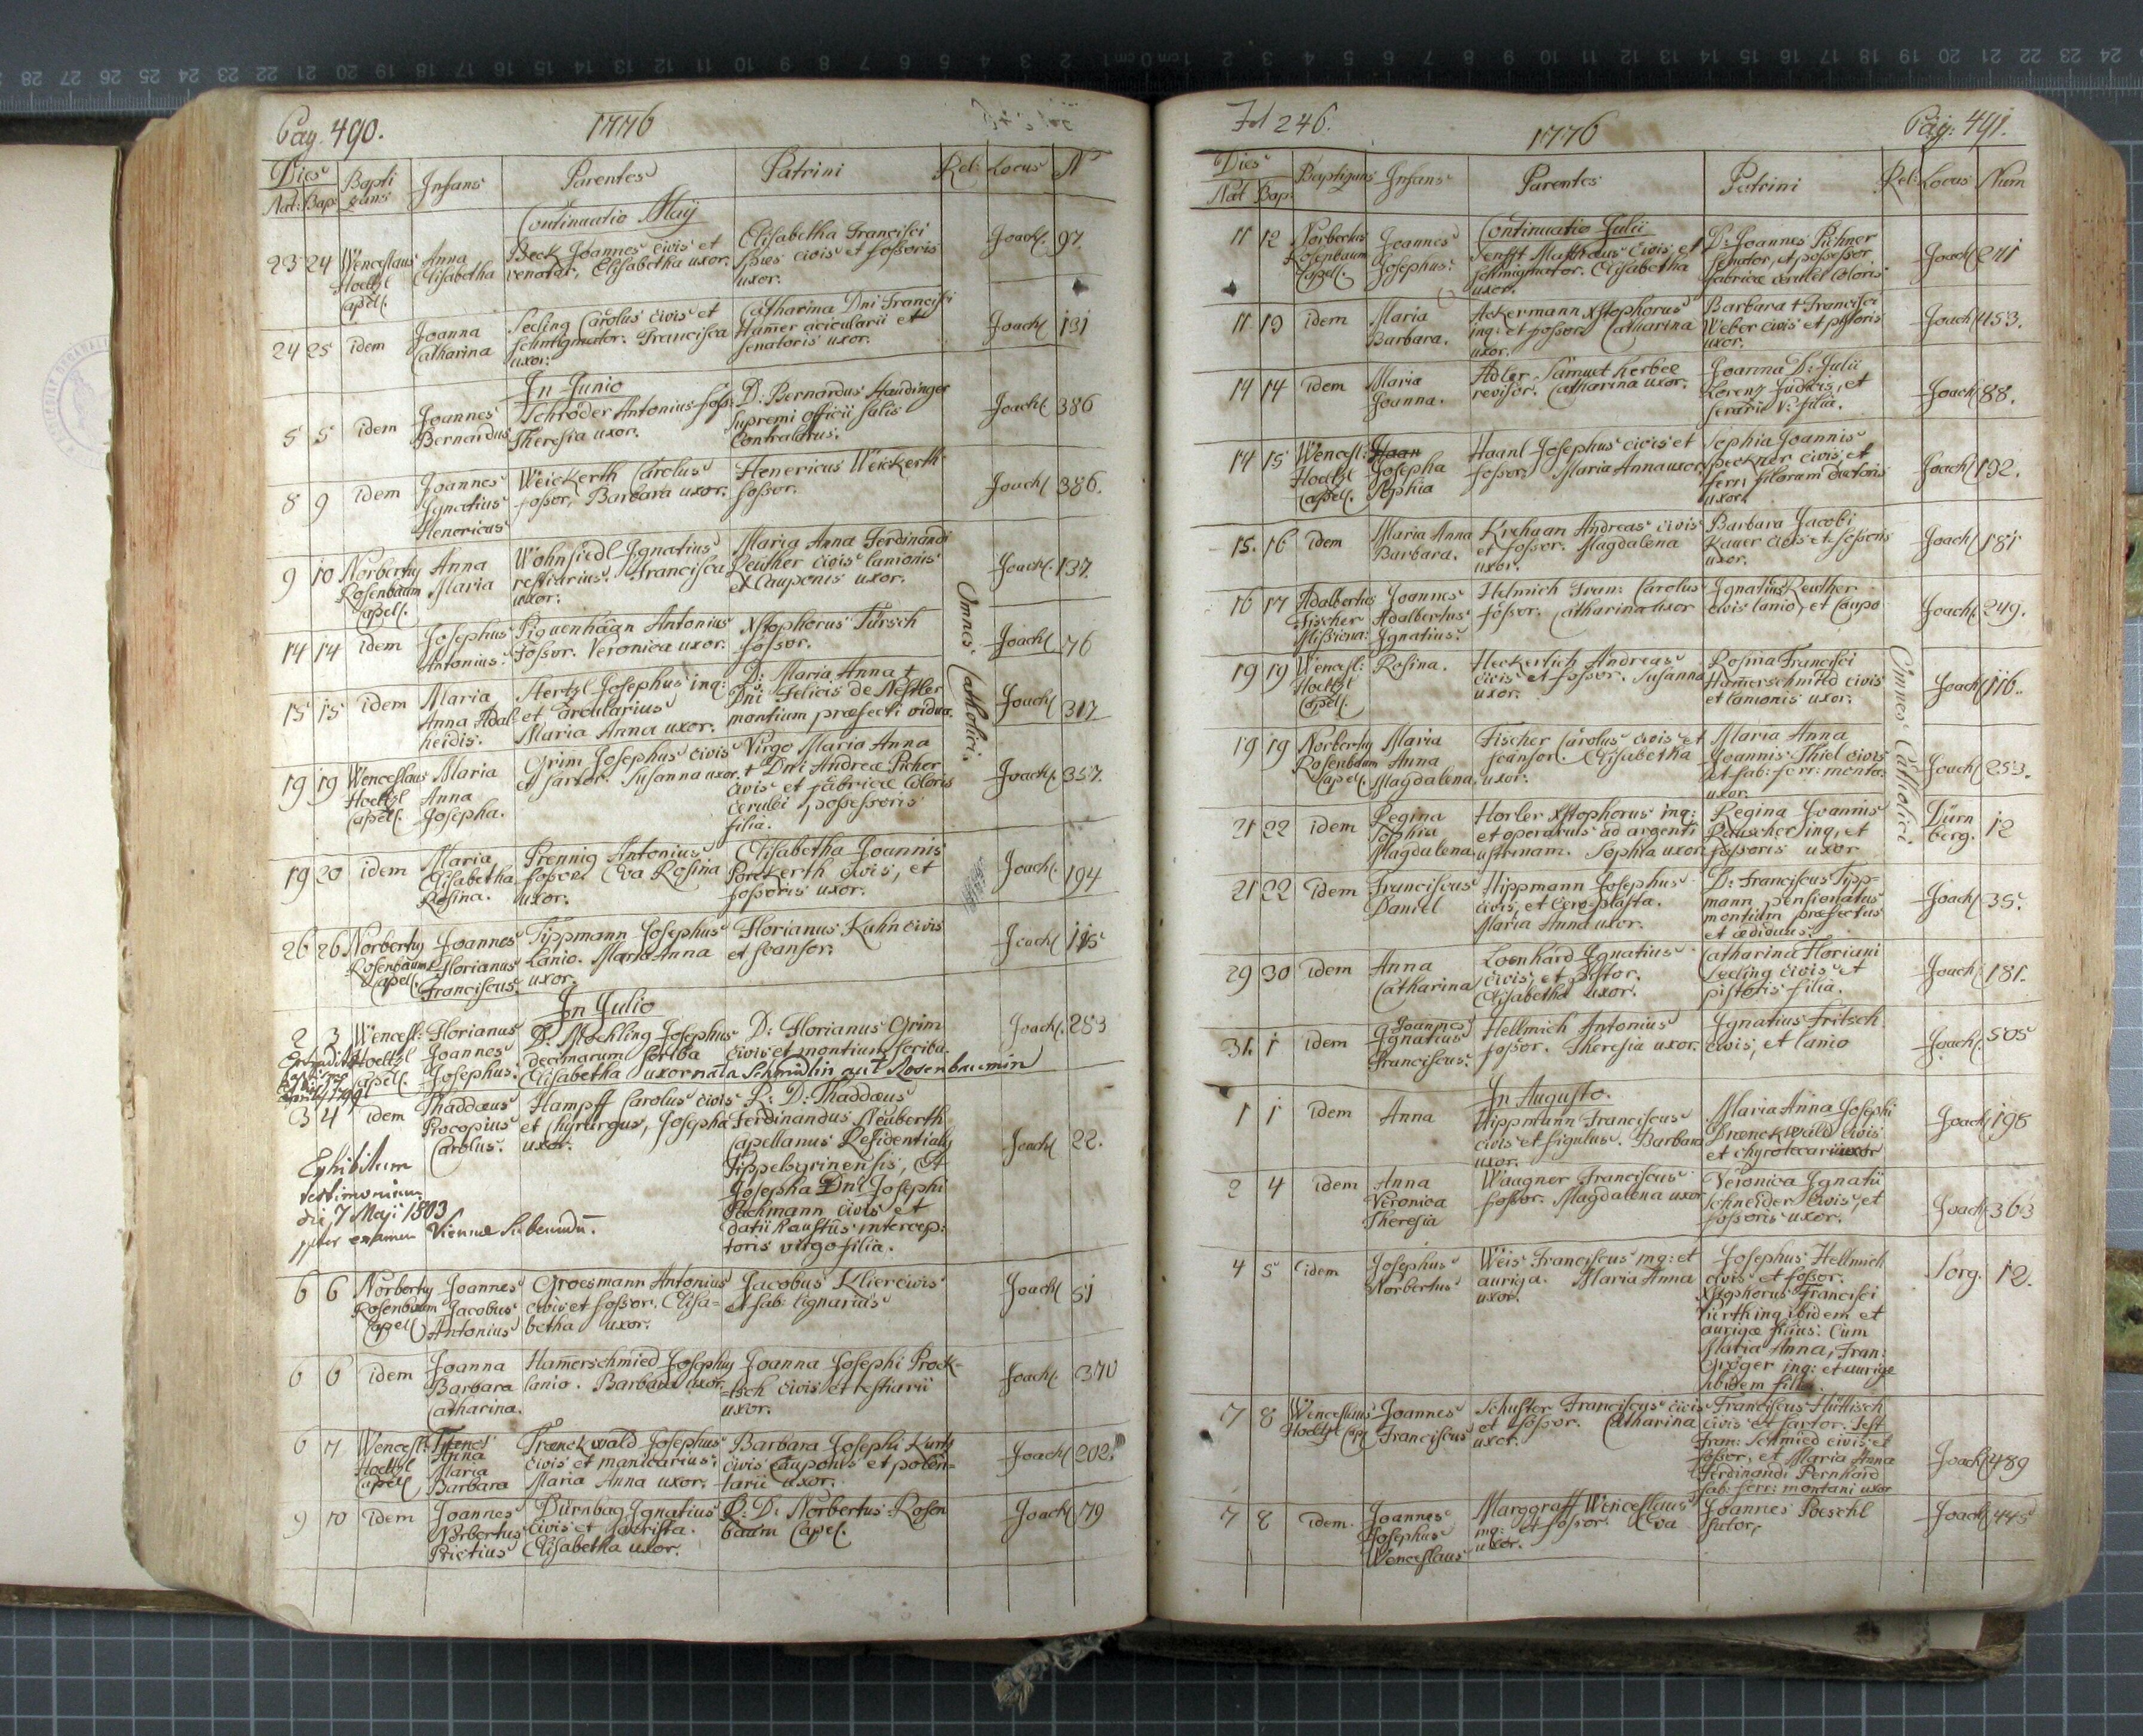 Pag. 490.
1776
Dies
Nat: Bap:
Bapti
zans
Infans
Parentes
Patrini
Rel:
Locus
N
Continuatio Maÿ
23 24 Wenceslaus Anna Beck Joannes civis et Elisabetha Francisci Joach. 97.
Hoeltzl Elisabetha venator, Elisabetha uxor. civis et fossoris
Capell. uxor.
24 25 idem Joanna Seeling Carolus civis et Catharina Dni Francisci Joach 131
Catharina Francisca Hamer acicularii et
uxor. senatoris uxor.
In Junio
5 5 idem Joannes Schröder Antonius foss: D: Bernardus Haudinger Joach 386
Bernardus Theresia uxor. Supremi officii salis
8 9 idem Joannes Weickerth Carolus Henericus Weickerth Joach 386.
Ignatius fossor, Barbara uxor. fossor.
Henericus
9 10 Norbertus Anna Wohnsiedl Ignatius Maria Anna Ferdinandi Joach. 137.
Rosenbaum Maria restiarius. Francisca Reuther civis lanionis
Capell. uxor. et Cauponis uxor.
14 14 idem Josephus Piguenhaan Antonius Xstophorus Türsch Joach 76
Antonius. Fossor. Veronica uxor. fossor.
15 15 idem Maria Hertzl Josephus inq: D: Maria Anna † Joach 317
Anna Adal- et arcularius Dni Felicis de Nestler
heidis. Maria Anna uxor. montium præfecti vidua.
19 19 Wenceslaus Maria Grim Josephus civis Virgo Maria Anna Joach. 357.
Hoeltzl Anna et sartor. Susanna uxor. † Dni Andreæ Picher
Capell. Josepha. civis et fabricæ Coloris
cerulei possessoris
filia.
19 20 idem Maria Prennig Antonius Elisabetha Joannis Joach. 194
Elisabetha fossor Eva Rosina Porckerth civis, et
Rosina. uxor. fossoris uxor.
26 26 Norbertus Joannes Tippmann Josephus Florianus Kuhn civis Joach 115
Rosenbaum Florianus Lanio. Maria Anna et scansor.
Capell. Franciscus. uxor.
Omnes Catholici.
In Julio
2 3 Wencesl: Florianus D: Mochling Josephus D: Florianus Grim Joach. 283
Hoeltzl Joannes decimarum scriba civis et montium scriba.
Capell. Josephus. Elisabetha uxor nata Schmidlin aut Rosenbaumin
3 4 idem Thaddæus Hampff Carolus civis R: D: Thaddæus Joach 22.
Procopius et Chyrurgus, Josepha Ferdinandus Neuberth
Carolus. uxor. Capellanus Residentialis
Exhibitum Tippelsgrinensis, Et
testimonium Josepha Dni Josephi
die 7 Maji 1803 Pachmann civis et
examen Viennæ Subeundū. datii haustus intercep:
toris virgo filia.
6 6 Norbertus Joannes Groesmann Antonius Jacobus Klier civis Joach 51
Rosenbaum Jacobus civis et fossor. Elisa- et fab: lignarius
Capell Antonius betha uxor.
6 6 idem Joanna Hamerschmied Josephus Joanna Josephi Prock- Joach. 370
Barbara lanio. Barbara uxor -tsch civis et restiarii
Catharina. uxor.
6 7 Wencesl: Anna Trænckwald Josephus Barbara Josephi Kurtz Joach 202.
Hoeltzl Maria civis et manicarius. civis Cauponis et polen-
Capell Barbara Maria Anna uxor. tarii uxor.
9 10 idem Joannes Dürnbag Ignatius R: D: Norbertus Rosen Joach 79
Norbertus civis et baum Capel.
Elisabetha uxor.
Fol 246.
1776
Pag: 491.
Dies
Nat Bap.
Baptizans
Infans
Parentes
Patrini
Rel:
Locus
Num
Continuatio Julii
11 12 Norbertus Joannes Senfft Matthæus civis et D: Joannes Pichner Joach 241
Rosenbaum Josephus. Elisabetha senator, et possessor
Capell. uxor. fabricæ cerulei Coloris
11 13 idem Maria Ackermann Xstophorus Barbara † Francisci Joach 453.
Barbara. inq: et fossor Catharina Weber civis et pistoris
uxor. uxor.
14 14 idem Maria Adler Samuel herbæ Joanna D: Julii Joach 88.
Joanna. revisor. Catharina uxor. Lorenz Judicis, et
filia.
14 15 Wencesl: Haan Haanl Josephus civis et Sophia Joannis Joach 132.
Hoeltzl Josepha fossor. Maria Anna uxor Speckner civis et
Capell. Sophia ferri filorum ductoris
uxor.
15. 16 idem Maria Anna Krehaan Andreas civis Barbara Jacobi Joach 181
Barbara. et fossor. Magdalena Kauer civis et fossoris
uxor. uxor.
16 17 Adalbertus Joannes Helmich Fran: Carolus Ignatius Reuther Joach. 249.
Fischer Adalbertus fossor. Catharina uxor civis lanio, et Caupo
Missiona: Ignatius.
19 19 Wencesl: Rosina. Heckerlich Andreas Rosina Francisci Joach 116.
Hoeltzl civis et fossor. Susanna Hamerschmied civis
Capell. uxor. et lanionis uxor.
19 19 Norbertus Maria Fischer Carolus civis et Maria Anna Joach 253.
Rosenbaum Anna scansor. Elisabetha Joannis Thiel civis
Capell. Magdalena uxor. et fab: ferr: monta:
uxor.
21 22 idem Regina Horler Xstophorus inq: Regina Joannis Dürn 12
Sophia et operarius ad argenti Rauscher inq, et berg.
Magdalena ustrinam. Sophia uxor fossoris uxor
21 22 idem Franciscus Hippmann Josephus D: Franciscus Tipp= Joach 35.
Daniel civis, et Ceroplasta. mann pensionatus
Maria Anna uxor. montium præfectus
et ædiquus.
29 30 idem Anna Loenhard Ignatius Catharina Floriani Joach 181.
Catharina civis, et pistor. Seeling civis et
Elisabetha uxor. pistoris filia.
31. 1 idem Joannes Hellmich Antonius Ignatius Fritsch Joach. 505
Ignatius fossor. Theresia uxor. civis, et lanio
Franciscus.
Omnes Catholici.
In Augusto.
1 1 idem Anna Hippmann Franciscus Maria Anna Josephi Joach 198
civis et figulus. Barbara Trænckwald civis
uxor. et chyrotecarii uxor
2 4 idem Anna Waagner Franciscus Veronica Ignatii Joach. 363
Veronica fossor. Magdalena uxor Schneider civis, et
Theresia fossoris uxor.
4 5 idem Josephus Weis Franciscus inq: et Josephus Hellmich Sorg. 12.
Norbertus auriga. Maria Anna civis et fossor.
uxor. Xstophorus Francisci
inq ibidem et
aurigæ filius. Cum
Maria Anna, Fran:
Gröger inq: et aurigæ
ibidem filia.
7 8 Wenceslaus Joannes Schuster Franciscus civis Franciscus Hüttisch Joach 489
Hoeltzl Cap: Franciscus et fossor. Catharina civis et sartor. Test
uxor. Fran: Schmied civis et
fossor, et Maria Anna
Ferdinandi Pernhard
fab: ferr: montani uxor
7 8 idem. Joannes Marggraff Wenceslaus Joannes Poeschl Joach 445
Josephus inq: et fossor. Eva sutor.
Wenceslaus uxor.